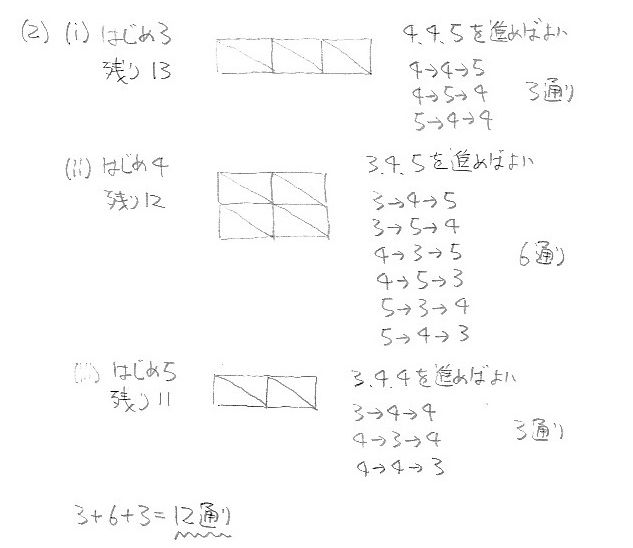 (2) (i) はじめ3
残り13
4,4,5を進めばよい
4→4→5
4→5→4
5→4→4
3通り
(ii) はじめ4
残り12
3,4,5を進めばよい
3→4→5
3→5→4
4→3→5
4→5→3
5→3→4
5→4→3
6通り
(iii) はじめ5
残り11
3,4,4を進めばよい
3→4→4
4→3→4
4→4→3
3通り
3+6+3=12通り